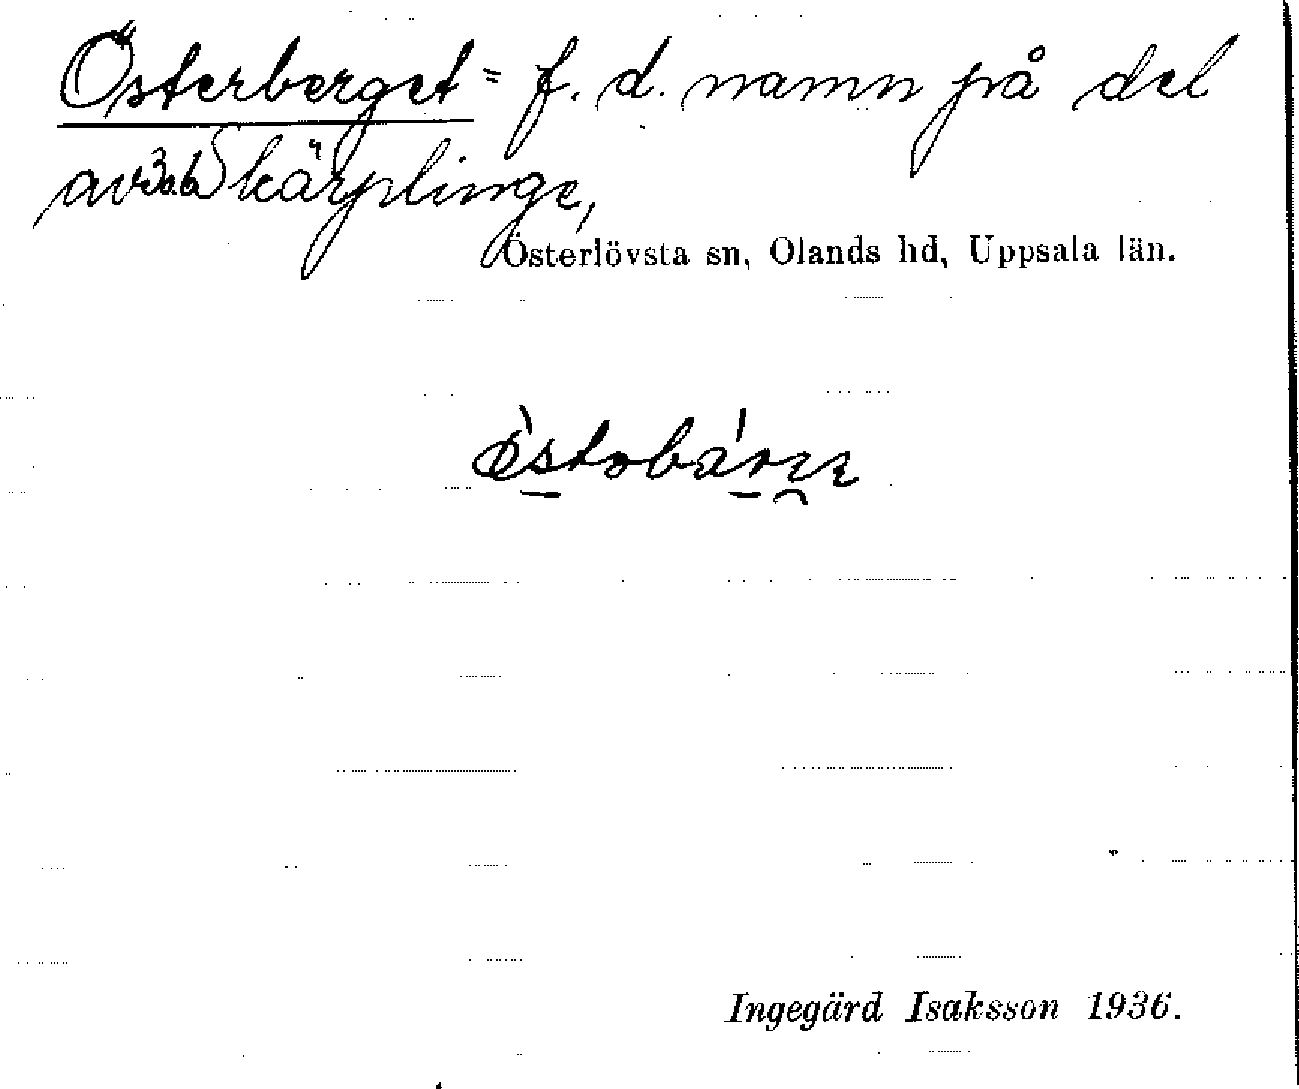 Österberget = f. d. namn på del
av 3a.b Skärplinge,
Österlövsta sn, Olands hd, Uppsala län.
Ingegärd Isaksson 1936.